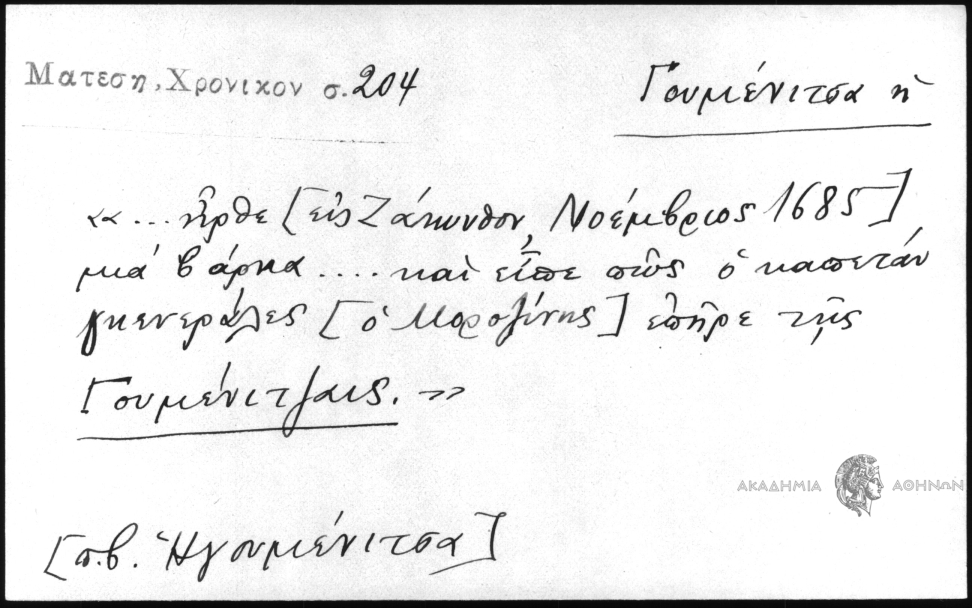 Ματεση, Χρονικον σ. 204
Γουμένιτσα ἡ
«... ἦρθε [εἰς Ζάκυνθον, Νοέμβριος 1685]
μιά βάρκα .... καὶ εἶπε πῶς ὁ καπετάν
γκενεράλες [ὁ Μοροζίνης] ἐπῆρε τῆς
Γουμένιτζαις. »
[π.β. Ἡγουμένιτσα]
ΑΚΑΔΗΜΙΑ ΑΘΗΝΩΝ